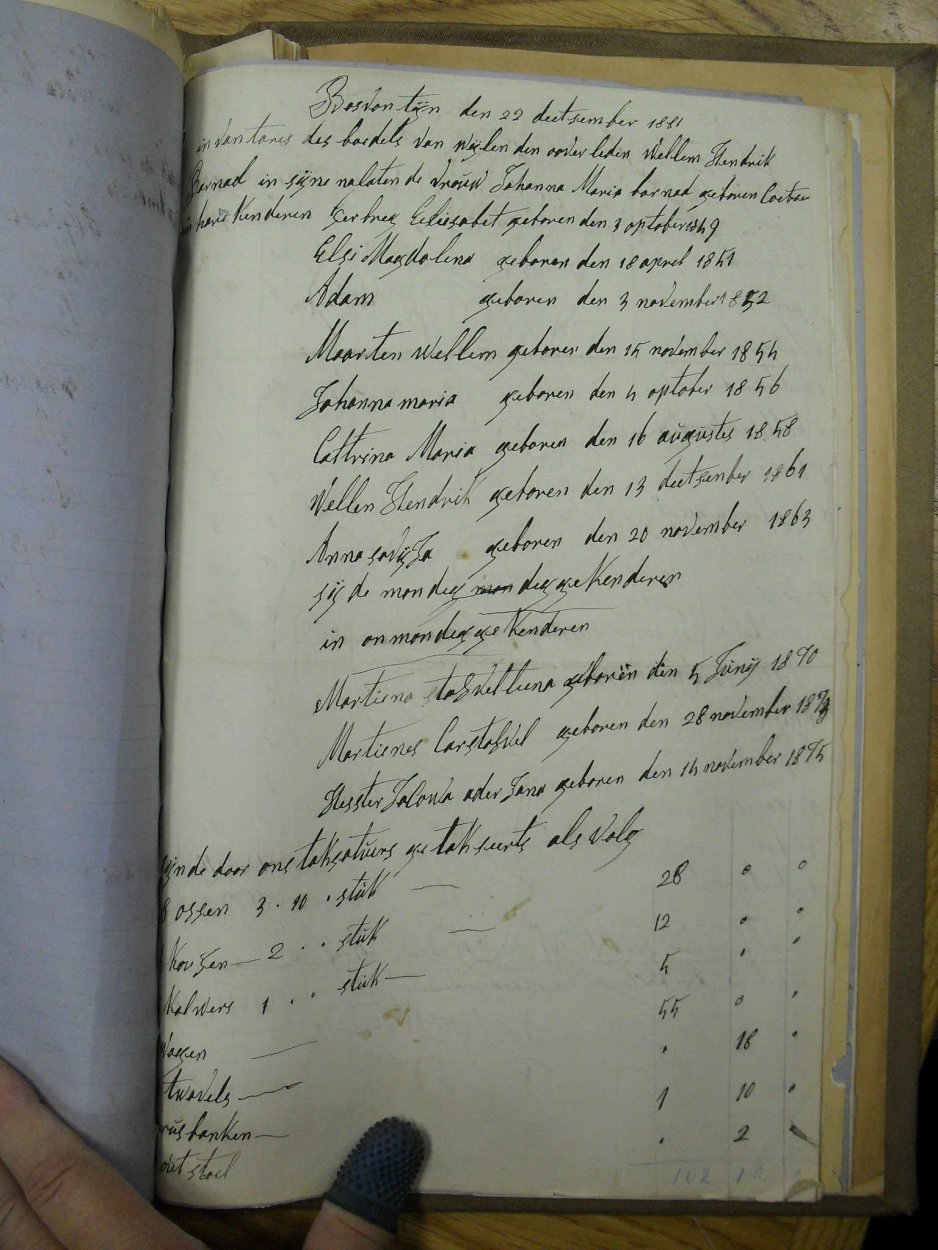 Bosvontÿn den 22 deetsember 1881
in van tares des boedels van wÿlen den ooverleden Wellem Hendrik
Barnad in sÿne nalaten de vrouw Johanna Maria barnad geboren Coetse
hare Kenderen Gerbreg Eeliesabet geboren den 3 optober 1849
Elsi Magdalena geboren den 18 aprel 1851
Adam geboren den 3 november 1852
Maarten Wellem geboren den 15 november 1854
Johanna maria geboren den 4 optober 1856
Cattrina Maria geboren den 16 augustes 1858
Wellen Hendrik geboren den 13 deetsember 1861
Anna sovÿja geboren den 20 november 1863
sÿ de mondeg mon degge Kenderen
in onmondegge Kenderen
Martiena geboren den 5 Junÿ 1870
Martienes geboren den 28 november
Hester geboren den 14 november 1875
door ons taksatuers getakseerts als volg
ossen 3 . 10 . stuk — 28 0 0
Koeijen — 2 . . stuk — 12
Kalwers 1 . . stuk — 5
Wagen — 55 0
— . 18 .
banken — 1 10 .
stoel . 2
102